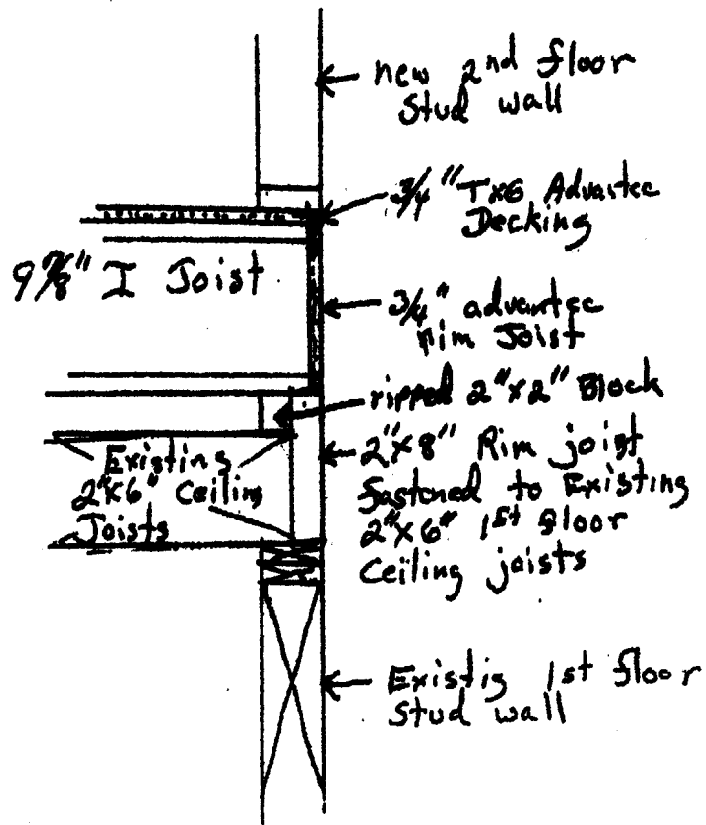 new 2nd floor
Stud wall
3/4" T×G Advantec
Decking
9 7/8" I Joist
3/4" advantec
rim Joist
ripped 2"×2" Block
Existing
2"×6" Ceiling
Joists
2"×8" Rim joist
fastened to Existing
2"×6" 1st floor
Ceiling joists
Existig 1st floor
Stud wall